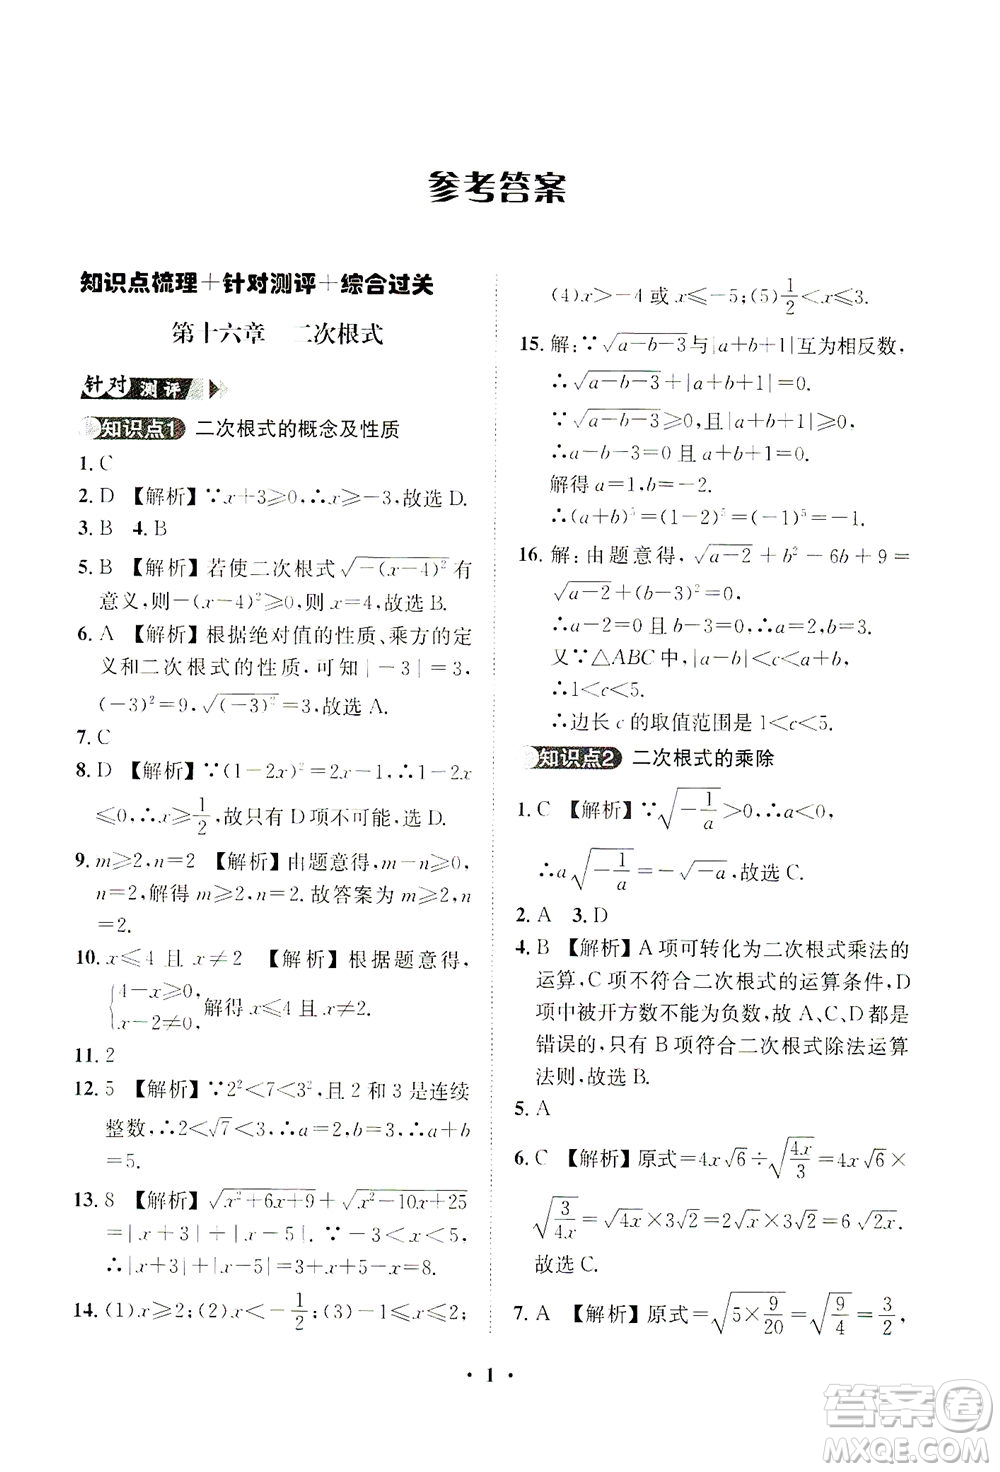 参考答案
知识点梳理+针对测评+综合过关
第十六章　二次根式
针对 测评
知识点1　二次根式的概念及性质
1. C
2. D 【解析】∵x+3≥0,∴x≥-3,故选 D.
3. B　4. B
5. B 【解析】若使二次根式√(-(x-4)²) 有
意义,则-(x-4)²≥0,则 x=4,故选 B.
6. A 【解析】根据绝对值的性质、乘方的定
义和二次根式的性质,可知|-3|=3,
(-3)²=9,√((-3)²)=3,故选 A.
7. C
8. D 【解析】∵√((1-2x)²)=2x-1,∴1-2x
≤0,∴x≥1/2,故只有 D 项不可能,选 D.
9. m≥2,n=2 【解析】由题意得,m-n≥0,
n=2,解得 m≥2,n=2.故答案为 m≥2,n=
2.
10. x≤4 且 x≠2 【解析】根据题意得,
{4-x≥0, x-2≠0,解得 x≤4 且 x≠2.
11. 2
12. 5 【解析】∵2²<7<3²,且 2 和 3 是连续
整数,∴2<√7<3,∴a=2,b=3,∴a+b
=5.
13. 8 【解析】√(x²+6x+9)+√(x²-10x+25)
=|x+3|+|x-5|.∵-3≤x≤5,
∴|x+3|+|x-5|=x+3+5-x=8.
14. (1)x≥2;(2)x<-1/2;(3)-1≤x≤2;
(4)x>-4 或 x≤-5;(5)1/2<x≤3.
15. 解:∵√(a-b-3)与|a+b|互为相反数,
∴√(a-b-3)+|a+b|=0.
∵√(a-b-3)≥0,|a+b|≥0,
∴a-b-3=0 且 a+b=0.
解得 a=1,b=-2.
∴(a+b)⁵=(1-2)⁵=(-1)⁵=-1.
16. 解:由题意得,√(a-2)+b²-6b+9=
√(a-2)+(b-3)²=0.
∴a-2=0,b-3=0.∴a=2,b=3.
又∵△ABC 中,|a-b|<c<a+b,
∴1<c<5.
∴边长 c 的取值范围是 1<c<5.
知识点2　二次根式的乘除
1. C 【解析】∵√(-1/a)>0,∴a<0,
∴a√(-1/a)=-√(-a),故选 C.
2. A　3. D
4. B 【解析】A 项可转化为二次根式乘法的
运算,C 项不符合二次根式的运算条件,D
项中被开方数不能为负数,故 A、C、D 都是
错误的,只有 B 项符合二次根式除法运算
法则,故选 B.
5. A
6. C 【解析】原式=4x√6÷√(4x/3)=4x√6×
√(3/4x)=√(4x)×3√2=2√x×3√2=6√(2x).
故选 C.
7. A 【解析】原式=√(5×9/20)=√(9/4)=3/2,
· 1 ·
答案圈
MXQE.COM